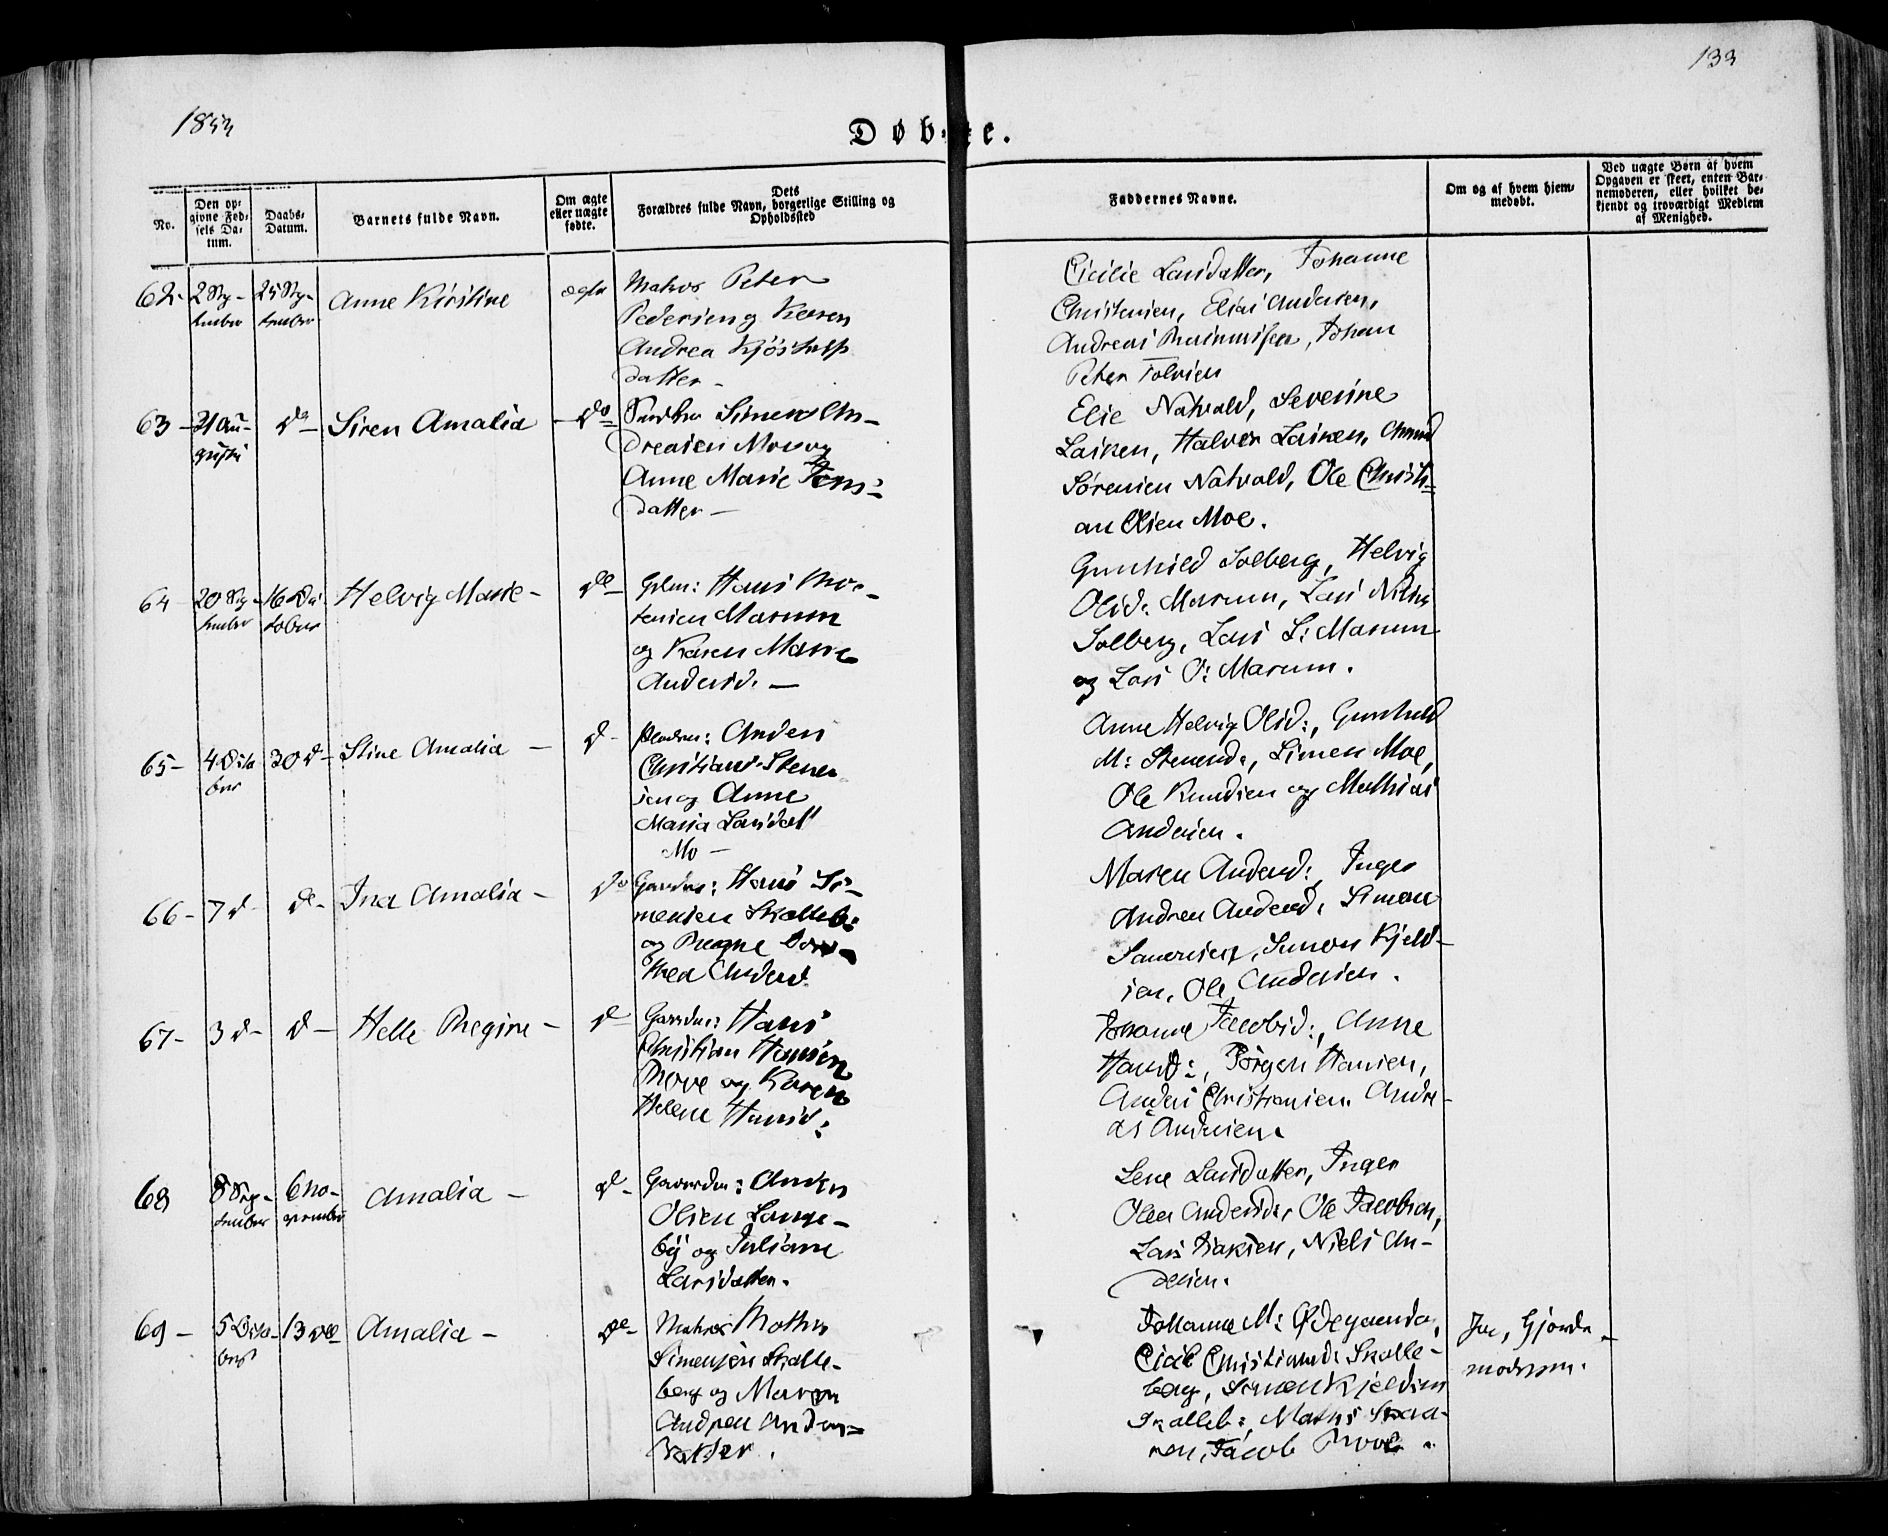 133
1853
Døbte.
No.
Den op-
givne Fød-
sels Da-
tum.
Daabs-
Datum.
Barnets fulde Navn.
Om ægte
eller uægte
fødte.
Dets
Forældres fulde Navn, borgerlige Stilling og
Opholdssted
Faddernes Navne.
Om og af hvem hjem-
medøbt.
Ved uægte Børn af hvem
Opgaven er skeet, enten Bar-
nemoderen, eller hvilket be-
kjendt og troværdigt Medlem
af Menighed.
62-
2 Sep-
tember
25 Sep-
tember
Anne Kirstine
ægte
Matros Peter
Pedersen og Karen
Andrea Kjøstelss
datter -
Cicilie Larsdatter, Johanne
Christensen, Elias Andersen,
Andreas, Johan
Peter
63 -
21 Au-
gusti
do -
Siren Amalia
- do
Simen An-
dreasen Moe og
Anne Marie Jens-
datter -
Elie Natvald, Severine
Larsen, Halvor Larsen, Amund
Sørensen Natvald, Ole Christi-
an Olsen Moe.
64 -
20 Sep-
tember
16 Oc-
tober
Helvig Marie -
do -
Gdm: Hans Mor-
tensen Marum
og Karen Marie
Andersd. -
Gunhild Solberg, Helvig
Olsd: Marum, Lars Niels
Solberg, Lars S: Marum
og Lars O: Marum.
65 -
4 Octo
ber
30 d -
Stine Amalia -
d -
Anders
Christian Stener
sen og Anne
Maria Larsdatt
Mo -
Anne Helvig Olsd:, Gunhild
M: Stenersd:, Simen Moe,
Ole Knudsen og Mathias
Andersen.
66 -
7 d -
do -
Ina Amalia -
do
Gaardm: Hans Si-
mensen Skalleb:
og Regine Doro-
thea Andersd.
Maren Andersd:, Inger
Andrea Andersd: Simon
Simensen, Simon Kjeld-
sen, Ole Andersen.
67 -
3 d -
d -
Helle Regine -
d -
Gaardm: Hans
Christian Hansen
Rove og Karen
Helene Hansd:
Johanne Jacobsd:, Anne
Hansd:, Jørgen Hansen,
Anders Christensen, Andre-
as Andersen.
68
8 Sep-
tember
6 No-
vember
Amalia -
d -
Gaardm: Anders
Olsen Lange-
by og Juliane
Larsdatter.
Lene Larsdatter, Inger
Olea Andersd:, Ole Jacobsen,
Lars Isaksen, Niels An-
dersen.
69 -
5 Octo-
ber
13 do
Amalia -
do -
Matros Mathis
Simensen Skalle-
berg og Maren
Andrea Anders-
datter.
Johanne M: Ødegaarden,
Cicil Christiansd: Skalle-
berg, Simen Kjeldsen
Skalleb:, Mathis Skaa-
nen, Jacob Rove.
Ja, Gjorde-
moderen.